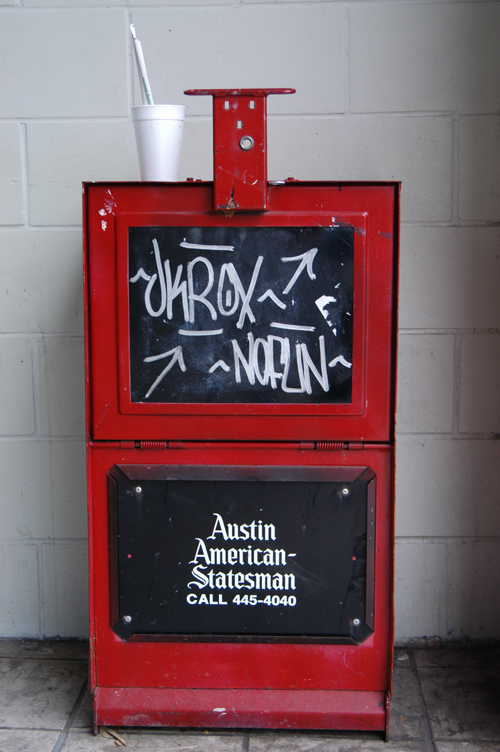 JKROX
NOFUN
Austin
American-
Statesman
CALL 445-4040